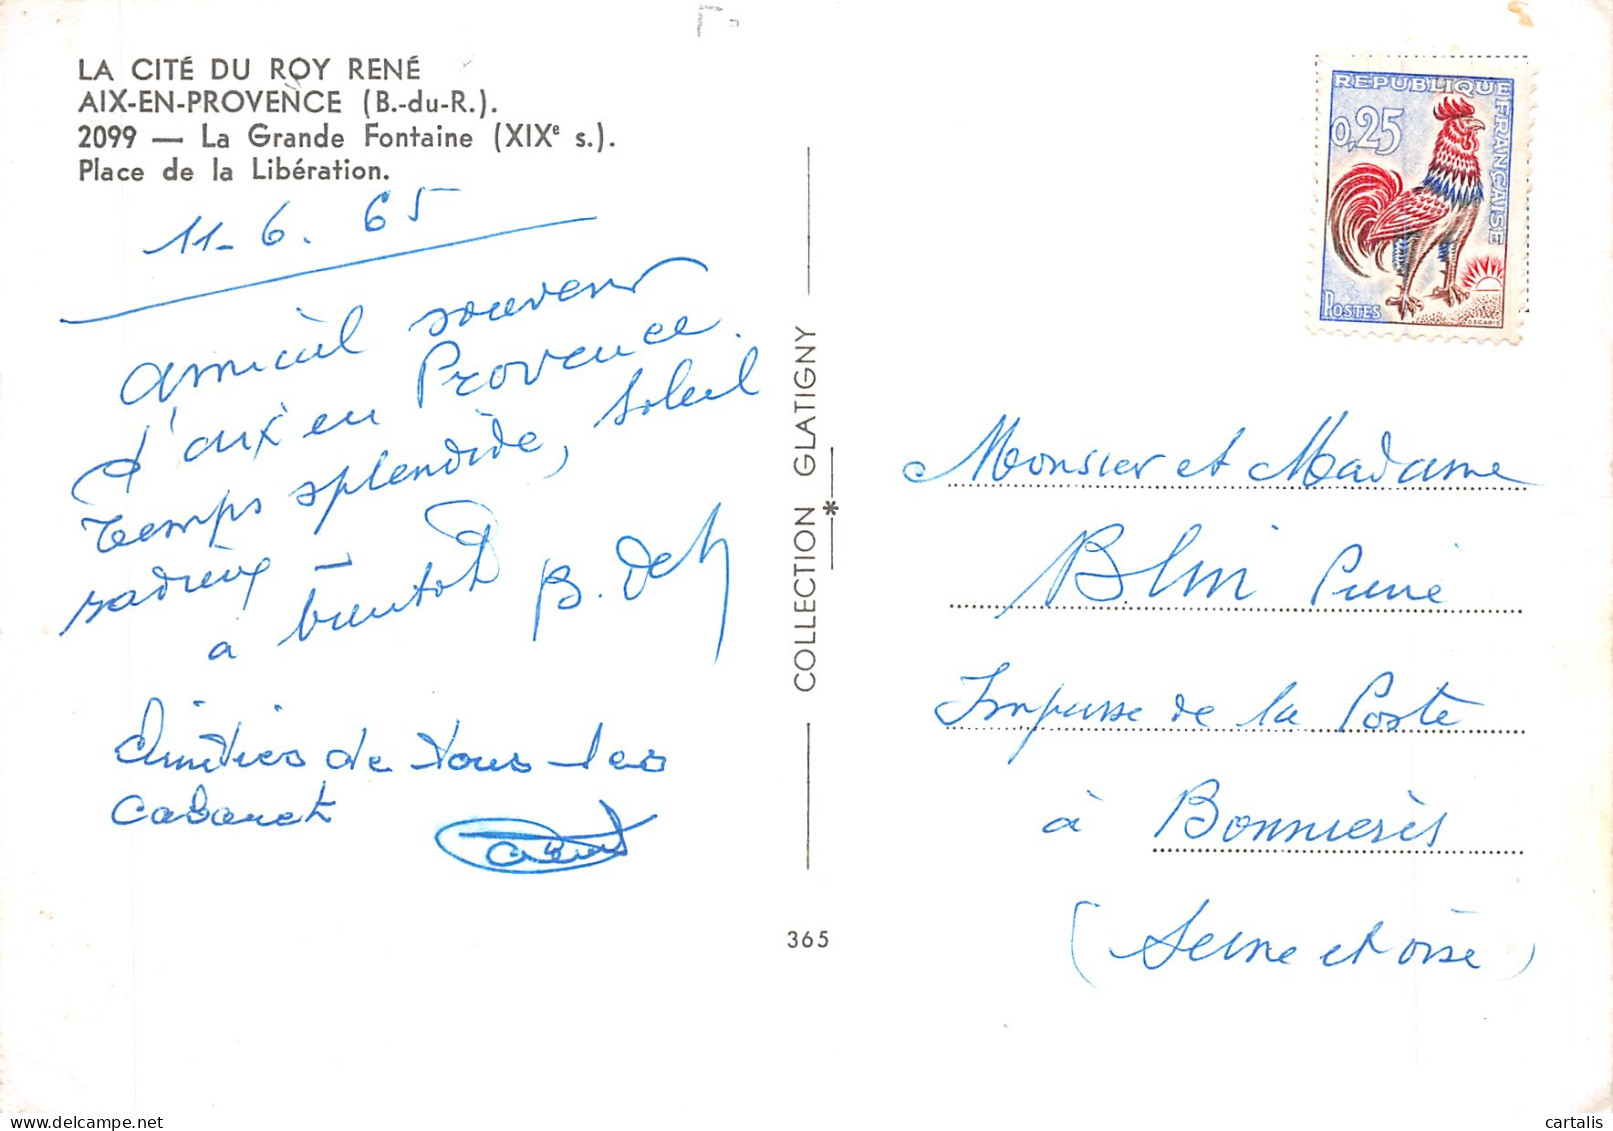 LA CITÉ DU ROY RENÉ
AIX-EN-PROVENCE (B.-du-R.).
2099 — La Grande Fontaine (XIXe s.).
Place de la Libération.
11-6. 65
amical souvenir
d'aix en Provence.
temps splendide, soleil
radieux –
a bientot B.
Amitiés de tous les
Cabaret
COLLECTION GLATIGNY
365
REPUBLIQUE FRANÇAISE
0,25
POSTES
DECARIS
Monsieur et Madame
Blin Pierre
Impasse de la Poste
à Bonnières
(Seine et oise)
cartalis